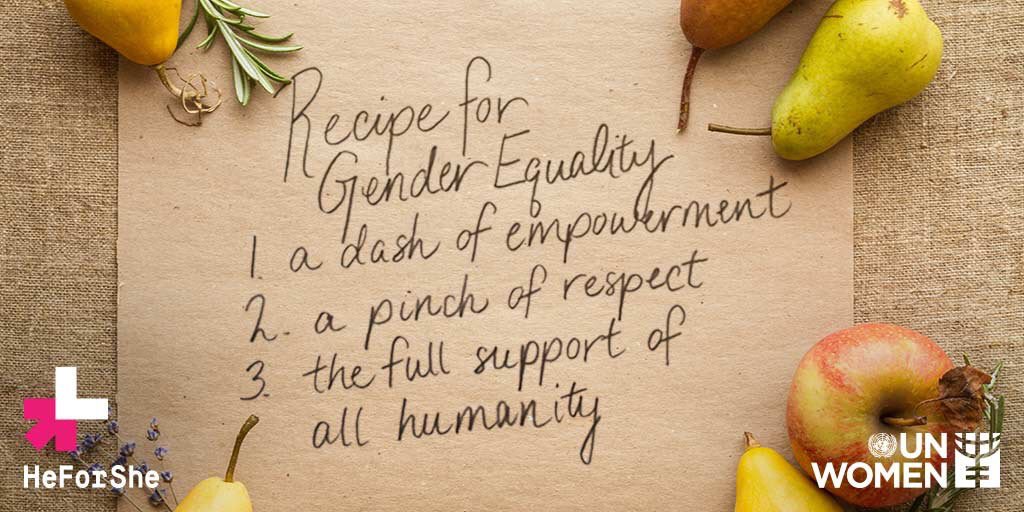 Recipe for
Gender Equality
1. a dash of empowerment
2. a pinch of respect
3. the full support of
all humanity
HeForShe
UN
WOMEN